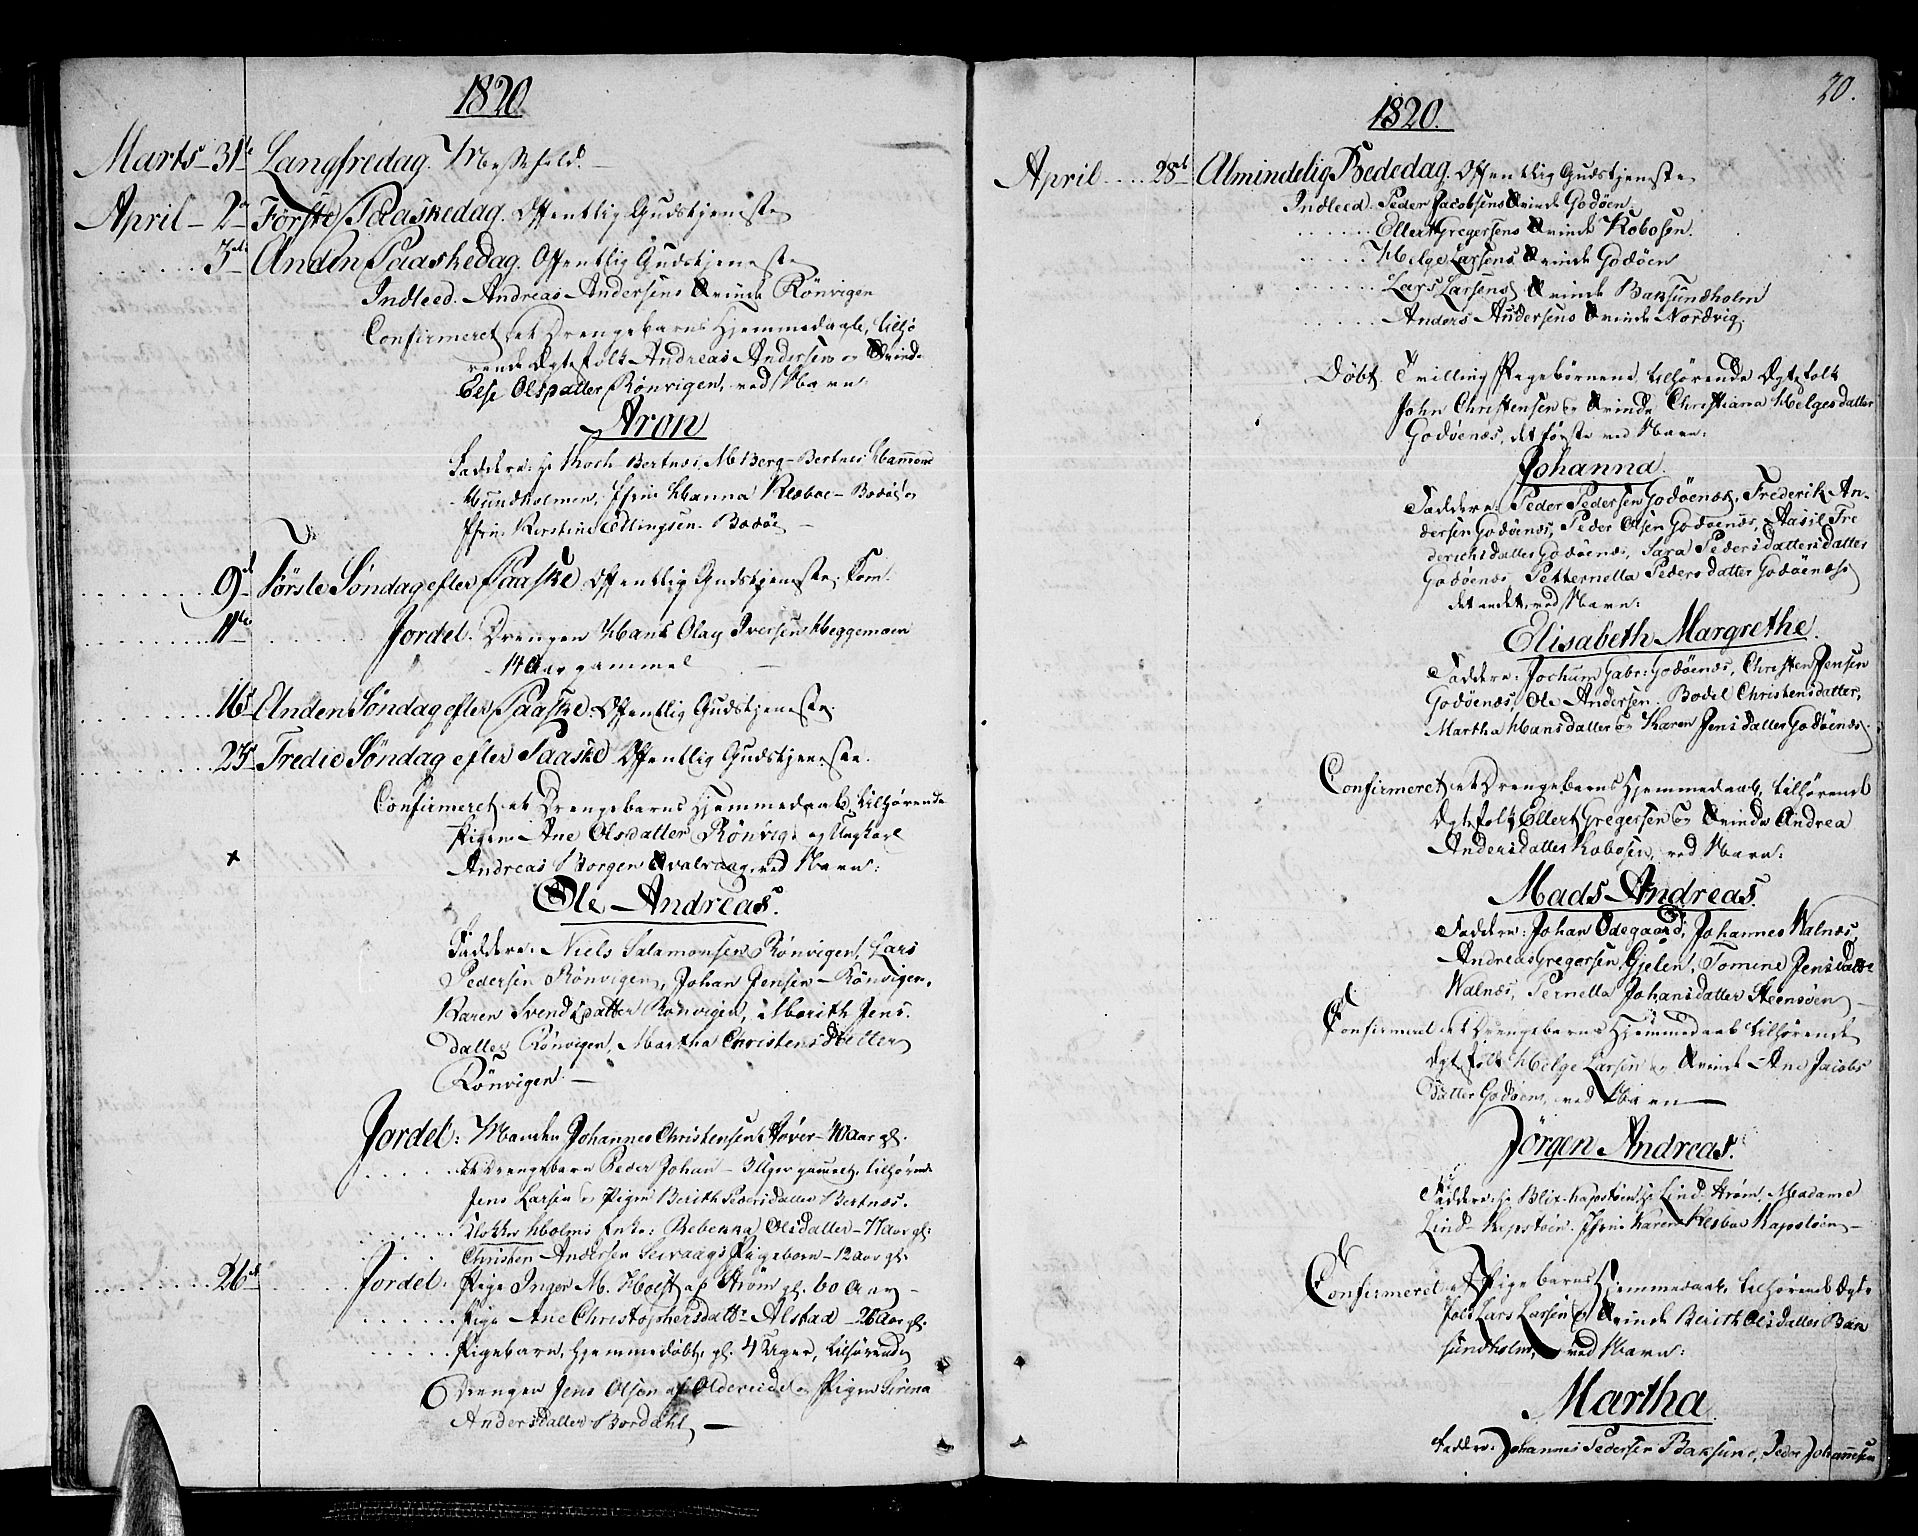 1820
Marts 31te Langfredag. Messefald.
April 2den Förste Paaskedag. Offentlig Gudstjeneste
3die Anden Paaskedag. Offentlig Gudstjeneste
Indleed. Andreas Andersens Qvinde Rönvigen
Confirmeret et Drengebarns Hjemmedaab, tilhö
rende Ægtefolk Andreas Andersen og Qvinde
Else Olsdatter Rönvigen, ved Navn
Aron
Faddere: Hr Koch Bertnes, M: Berg Bertnes
Hundholmen, Jfru Hanna Klæboe Bodöe og
Jfru Kirstine Ellingsen Bodöe
9de Förste Söndag efter Paaske Offentlig Gudstjeneste. Com.
11te Jordet. Drengen Hans Olay Iversen Heggemoen
14 Aar gammel
16de Anden Söndag efter Paaske. Offentlig Gudstjeneste.
23de Tredie Söndag efter Paaske Offentlig Gudstjeneste.
Confirmeret et Drengebarns Hjemmedaab, tilhörende
Pigen Ane Olsdatter Rönvig og Ungkarl
Andreas Borgen Qvalvaag, ved Navn:
Ole Andreas.
Faddere: Niels Salamonsen Rönvigen, Lars
Pedersen Rönvigen, Johan Jensen Rönvigen,
Karen Svendsdatter Rönvigen, Berith Jens
datter Rönvigen, Martha Christensdatter
Rönvigen.
Jordet: Manden Johannes Christensen Höver 40 Aar gl.
et Drengebarn Peder Johan 3 Uger gammel, tilhörende
Jens Larsen og Pigen Berith Pedersdatter Bertnæs.
Klokker Holms Enke: Rebekka Olsdatter 77 Aar gl:
Christen Andersen Seivaags Pigebarn 12 Aar gl:
26de Jordet. Pige Inger M. Holst af Ström gl. 60 Aar
Pige Ane Christophersdattr Alstad 26 Aar gl.
Pigebarn, hjemmedöbt, gl. 4 Uger, tilhörende
Drengen Jens Olsen af Oldereide og Pigen Sirena
Andersdatter Bordahl
20.
1820.
April 28de Almindelig Bededag. Offentlig Gudstjeneste
Indleed. Peder Jacobsens Qvinde Godöen.
Ellert Gregersens Qvinde Kobosen.
Helge Larsens Qvinde Godöen
Lars Larsens Qvinde Baksundholm
Anders Andersens Qvinde Nordvig.
Döbt. Tvilling Pigebörnene, tilhörende Ægtefolk
John Christensen og Qvinde Christiana Helgesdatter
Godöenæs, det förste ved Navn:
Johanna.
Faddere: Peder Pedersen Godöenæs, Frederik An-
dersen Godöenæs, Peder Olsen Godöenæs, Aasil Fre
derichsdatter Godöenæs, Sara Pedersdattersdatter
Godöenæs, Petternella Pedersdatter Godöenæs
det andet, ved Navn:
Elisabeth Margrethe.
Faddere: Jochum Gabr: Godöenæs, Christen Jensen
Godöenæs, Ole Andersen, Bodel Christensdatter,
Martha Hansdatter og Karen Jensdatter Godöenæs.
Confirmeret et Drengebarns Hjemmedaab, tilhörende
Ægtefolk Ellert Gregersen og Qvinde Andrea
Andersdatter Kobosen, ved Navn:
Mads Andreas.
Faddere: Johan Ödegaard, Johannes Walnæs,
Andreas Gregersen Gjelen, Tomine Jensdatter
Walnæs, Pernella Johansdatter Steensöen
Confirmeret et Drengebarns Hjemmedaab tilhörende
Ægtefolk Helge Larsen og Qvinde Ane Jacobs
datter Godöen, ved Navn
Jörgen Andreas.
Faddere: Hr Blix Kapstöen, Hr Lind Ström, Madame
Lind Kapstöen, Jfru Karen Klæboe Kapstöen
Confirmeret et Pigebarns Hjemmedaab, tilhörende Ægte
folk Lars Larsen og Qvinde Berith Olsdatter Bak
sundholm, ved Navn:
Martha.
Faddere: Johannes Pedersen Baksund, Peder Johannesen